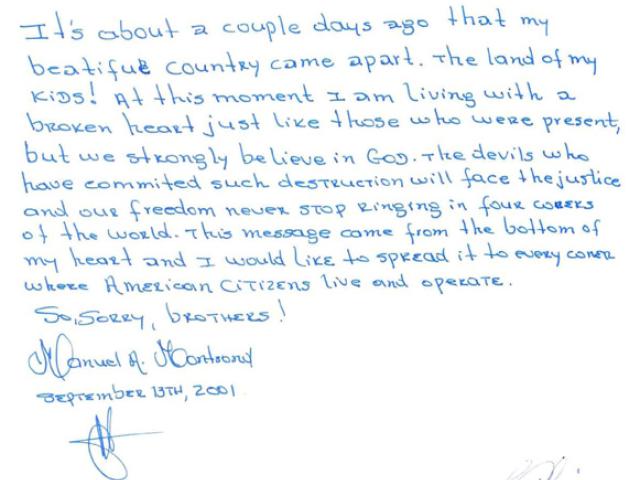 It's about a couple days ago that my
beatiful country came apart. The land of my
KIDS! At this moment I am living with a
broken heart just like those who were present,
but we strongly believe in GOD. The devils who
have commited such destruction will face the justice
and our freedom never stop ringing in four corers
of the world. This message came from the bottom of
my heart and I would like to spread it to every coner
where American Citizens live and operate.
So, Sorry, brothers!
Manuel A.
September 13TH, 2001